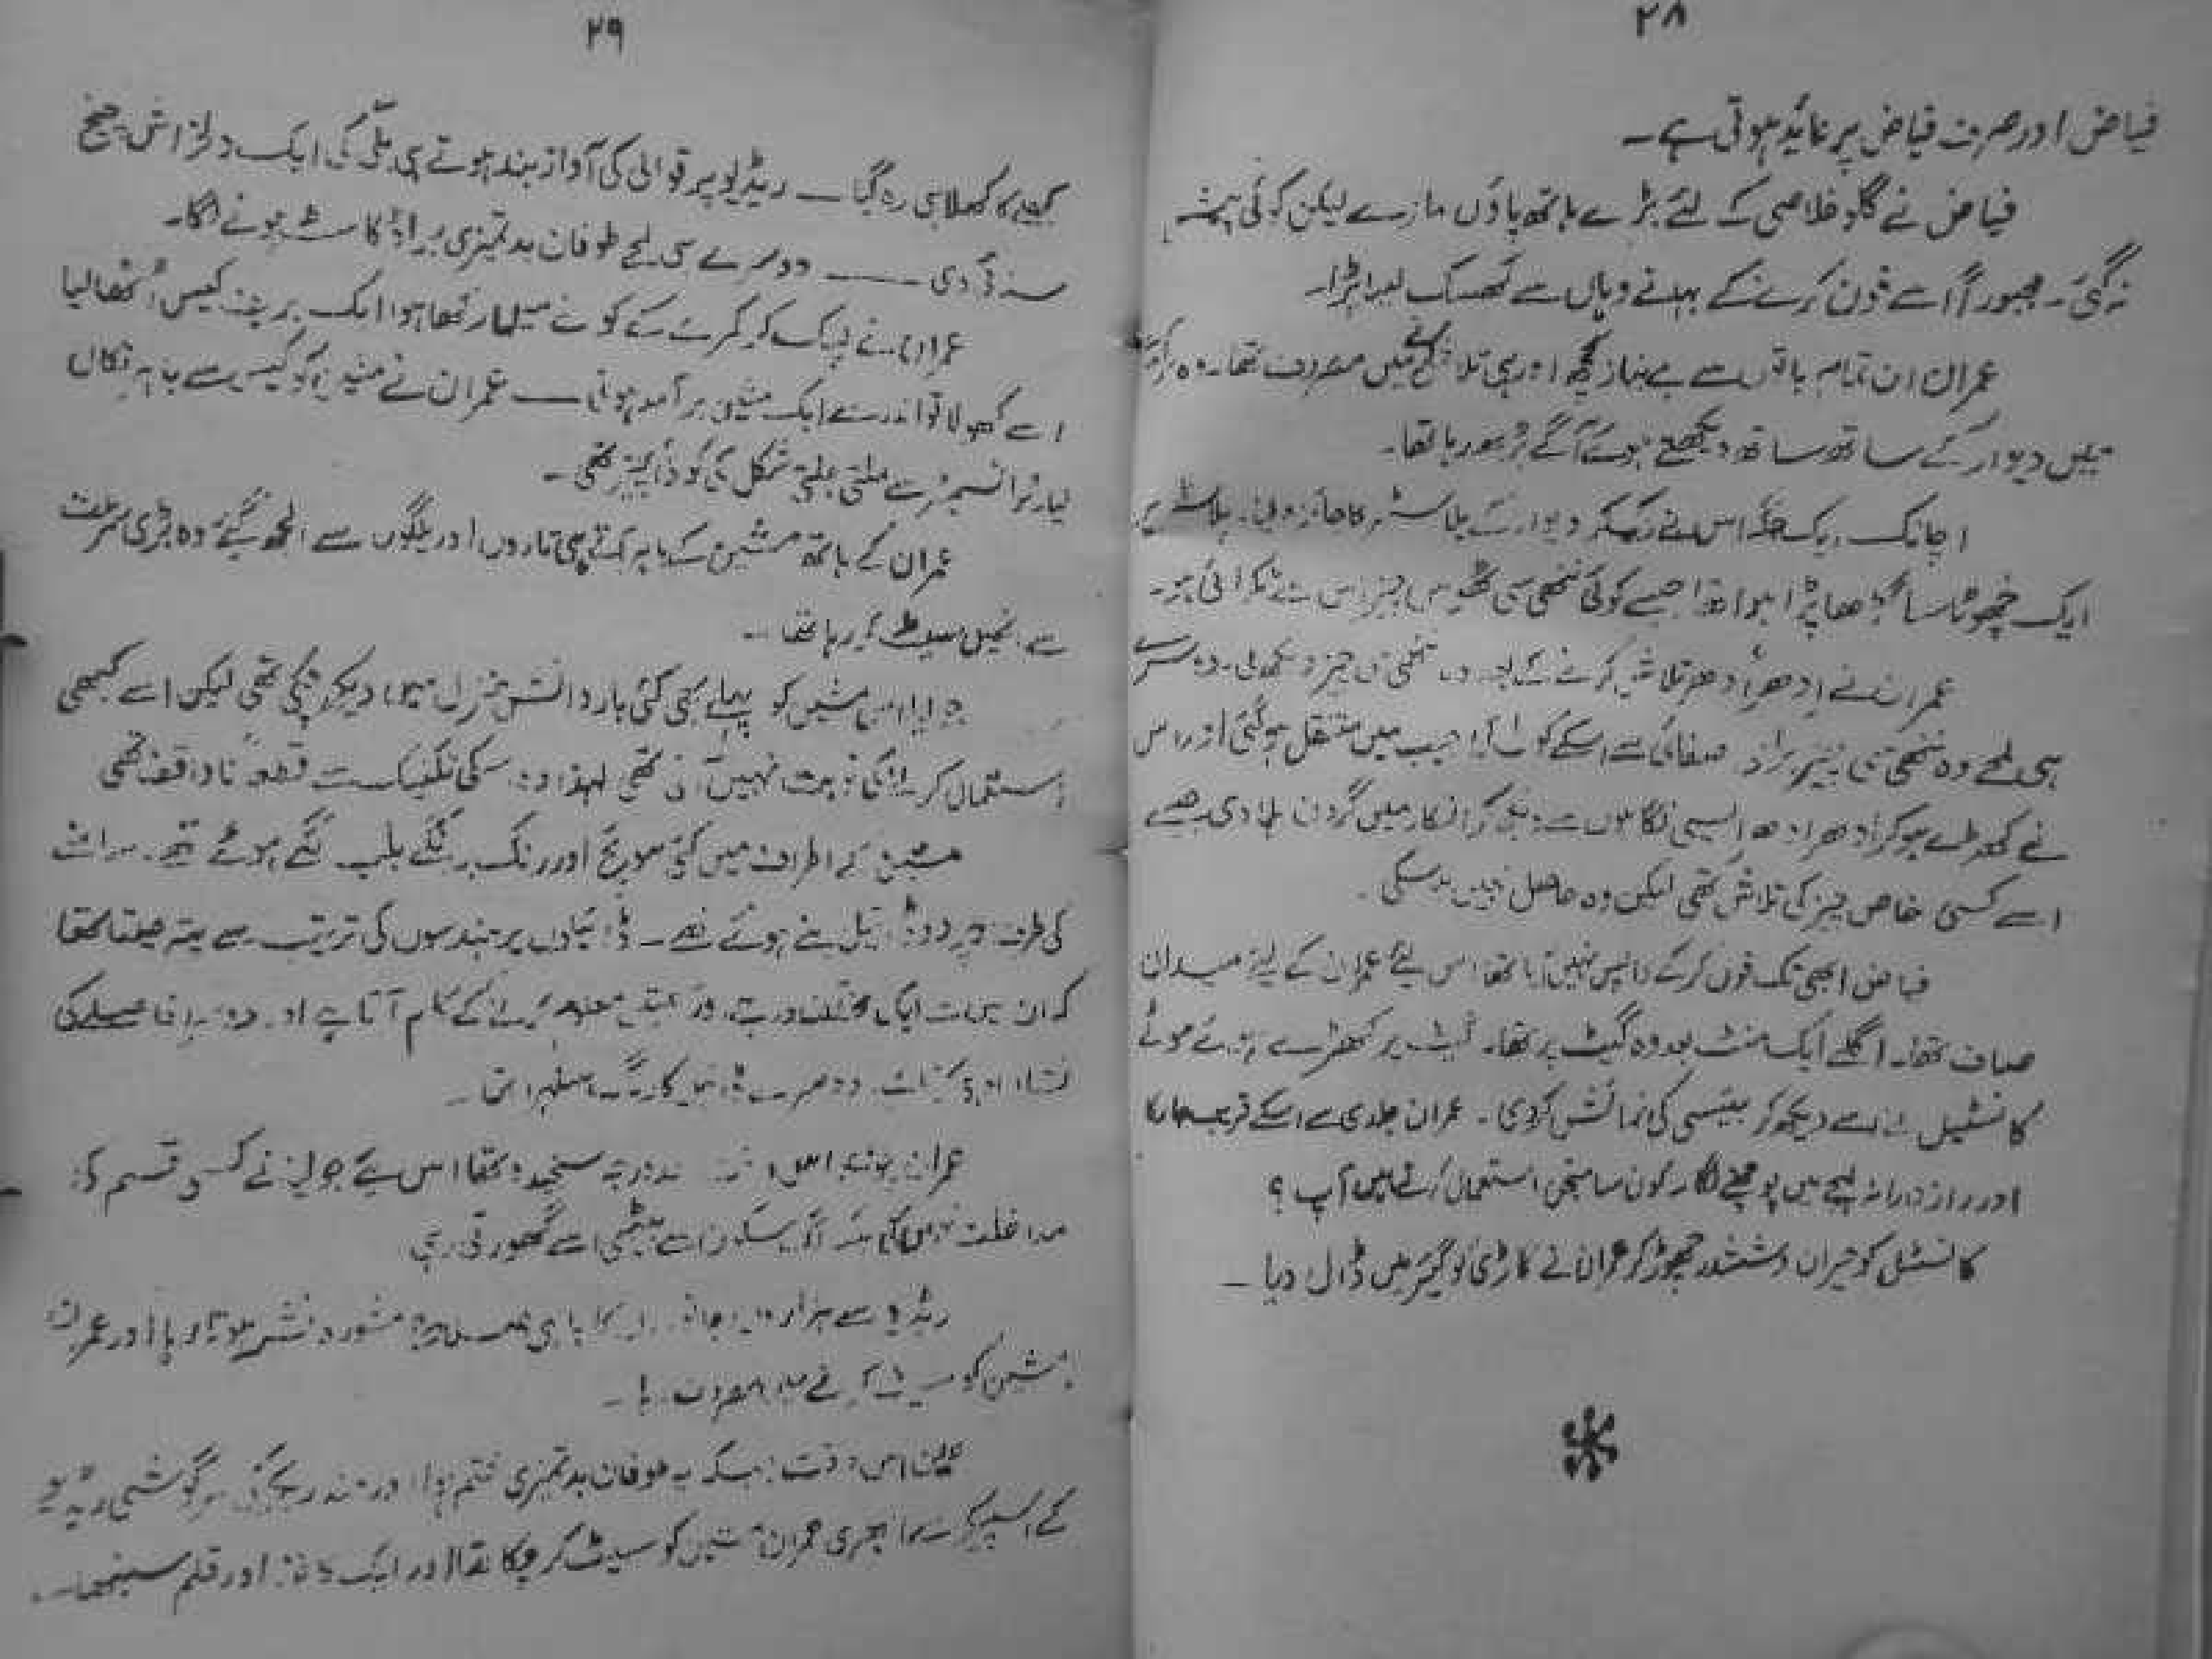 ۲۸
فیاض اور صرف فیاض پر عائد ہوتی ہے۔
فیاض نے گلو خلاصی کے لئے بڑے ہاتھ پاؤں مارے لیکن کوئی پیش
نہ گئی۔ مجبوراً اسے فون کرنے کے بہانے وہاں سے کھسک لینا پڑا۔
عمران ان تمام باتوں سے بے نیاز کچھ اور ہی تلاش کرنے میں مصروف تھا۔ وہ
میں دیوار کے ساتھ ساتھ دیکھتے ہوئے آگے بڑھ رہا تھا۔
اچانک ایک جگہ اس نے رک کر دیوار کے پلاسٹر کا جائزہ لیا۔ پلاسٹر پر
ایک چھوٹا سا گڑھا پڑا ہوا تھا جیسے کوئی ننھی سی ٹھوس چیز اس سے ٹکرائی ہو۔
عمران نے ادھر اُدھر تلاش کرنے کے بعد وہ ننھی سی چیز دیکھ لی۔ دوسرے
ہی لمحے وہ ننھی سی چیز بڑی صفائی سے اسکے کوٹ کی جیب میں منتقل ہو گئی اور اس
نے کھڑے ہو کر ادھر ادھر ایسی نگاہوں سے دیکھ کر انکار میں گردن ہلا دی جیسے
اسے کسی خاص چیز کی تلاش تھی لیکن وہ حاصل نہیں ہو سکی۔
فیاض ابھی تک فون کر کے واپس نہیں آیا تھا اس لئے عمران کے لیئے میدان
صاف تھا۔ اگلے ایک منٹ بعد وہ گیٹ پر تھا۔ گیٹ پر کھڑے ہوئے
کانسٹیبل نے اسے دیکھ کر بتیسی کی نمائش کر دی۔ عمران جلدی سے اسکے قریب جا رکا
اور رازدارانہ لہجے میں پوچھنے لگا۔ کون سا منجن استعمال کرتے ہیں آپ؟
کانسٹبل کو حیران و ششدر چھوڑ کر عمران نے گاڑی کو گیئر میں ڈال دیا۔
۲۹
کھلا ہی رہ گیا۔ ریڈیو پر قوالی کی آواز بند ہوتے ہی بلّی کی ایک دلخراش چیخ
سنائی دی۔ دوسرے ہی لمحے طوفان بدتمیزی براڈ کاسٹ ہونے لگا۔
عمران نے لپک کر کمرے کے کونے میں رکھا ہوا ایک بریف کیس اُٹھا لیا
اسے کھولا تو اندر سے ایک مشین برآمد ہوئی۔ عمران نے مشین کو کیس سے باہر نکال
لیا۔ ٹرانسمیٹر سے ملتی جلتی شکل کی کوئی چیز تھی۔
عمران کے ہاتھ مشین کے باہر آتے ہی تاروں اور پلگوں سے الجھ گئے وہ بڑی سرعت
سے انھیں سیٹ کر رہا تھا۔
جولیا اس مشین کو پہلے بھی کئی بار دانش منزل میں دیکھ چکی تھی لیکن اسے کبھی
استعمال کرنے کی نوبت نہیں آئی تھی لہذا وہ اسکی تکنیک سے قطعی ناواقف تھی
مشین کے اطراف میں کئی سوئچ اور رنگ برنگے بلب لگے ہوئے تھے۔ سامنے
کی طرف دو ڈائیل بنے ہوئے تھے۔ ڈائیلوں پر ہندسوں کی ترتیب سے پتہ چلتا تھا
کہ ان میں سے ایک معلوم کرنے کے کام آتا ہے اور دوسرا فاصلے کی
دوسرے
عمران سنجیدہ تھا اس لئے جولیا نے کسی قسم کی
مداخلت نہیں کی بیٹھی اسے گھورتی رہی
ریڈیو سے نشر ہوتا رہا اور عمران
مشین کو سیٹ کرنے میں مصروف رہا۔
لیکن اس وقت جبکہ یہ طوفان بدتمیزی ختم ہوا اور سرگوشی ریڈیو
کے اسپیکر سے ابھری عمران مشین کو سیٹ کر چکا تھا اور ایک کاغذ اور قلم